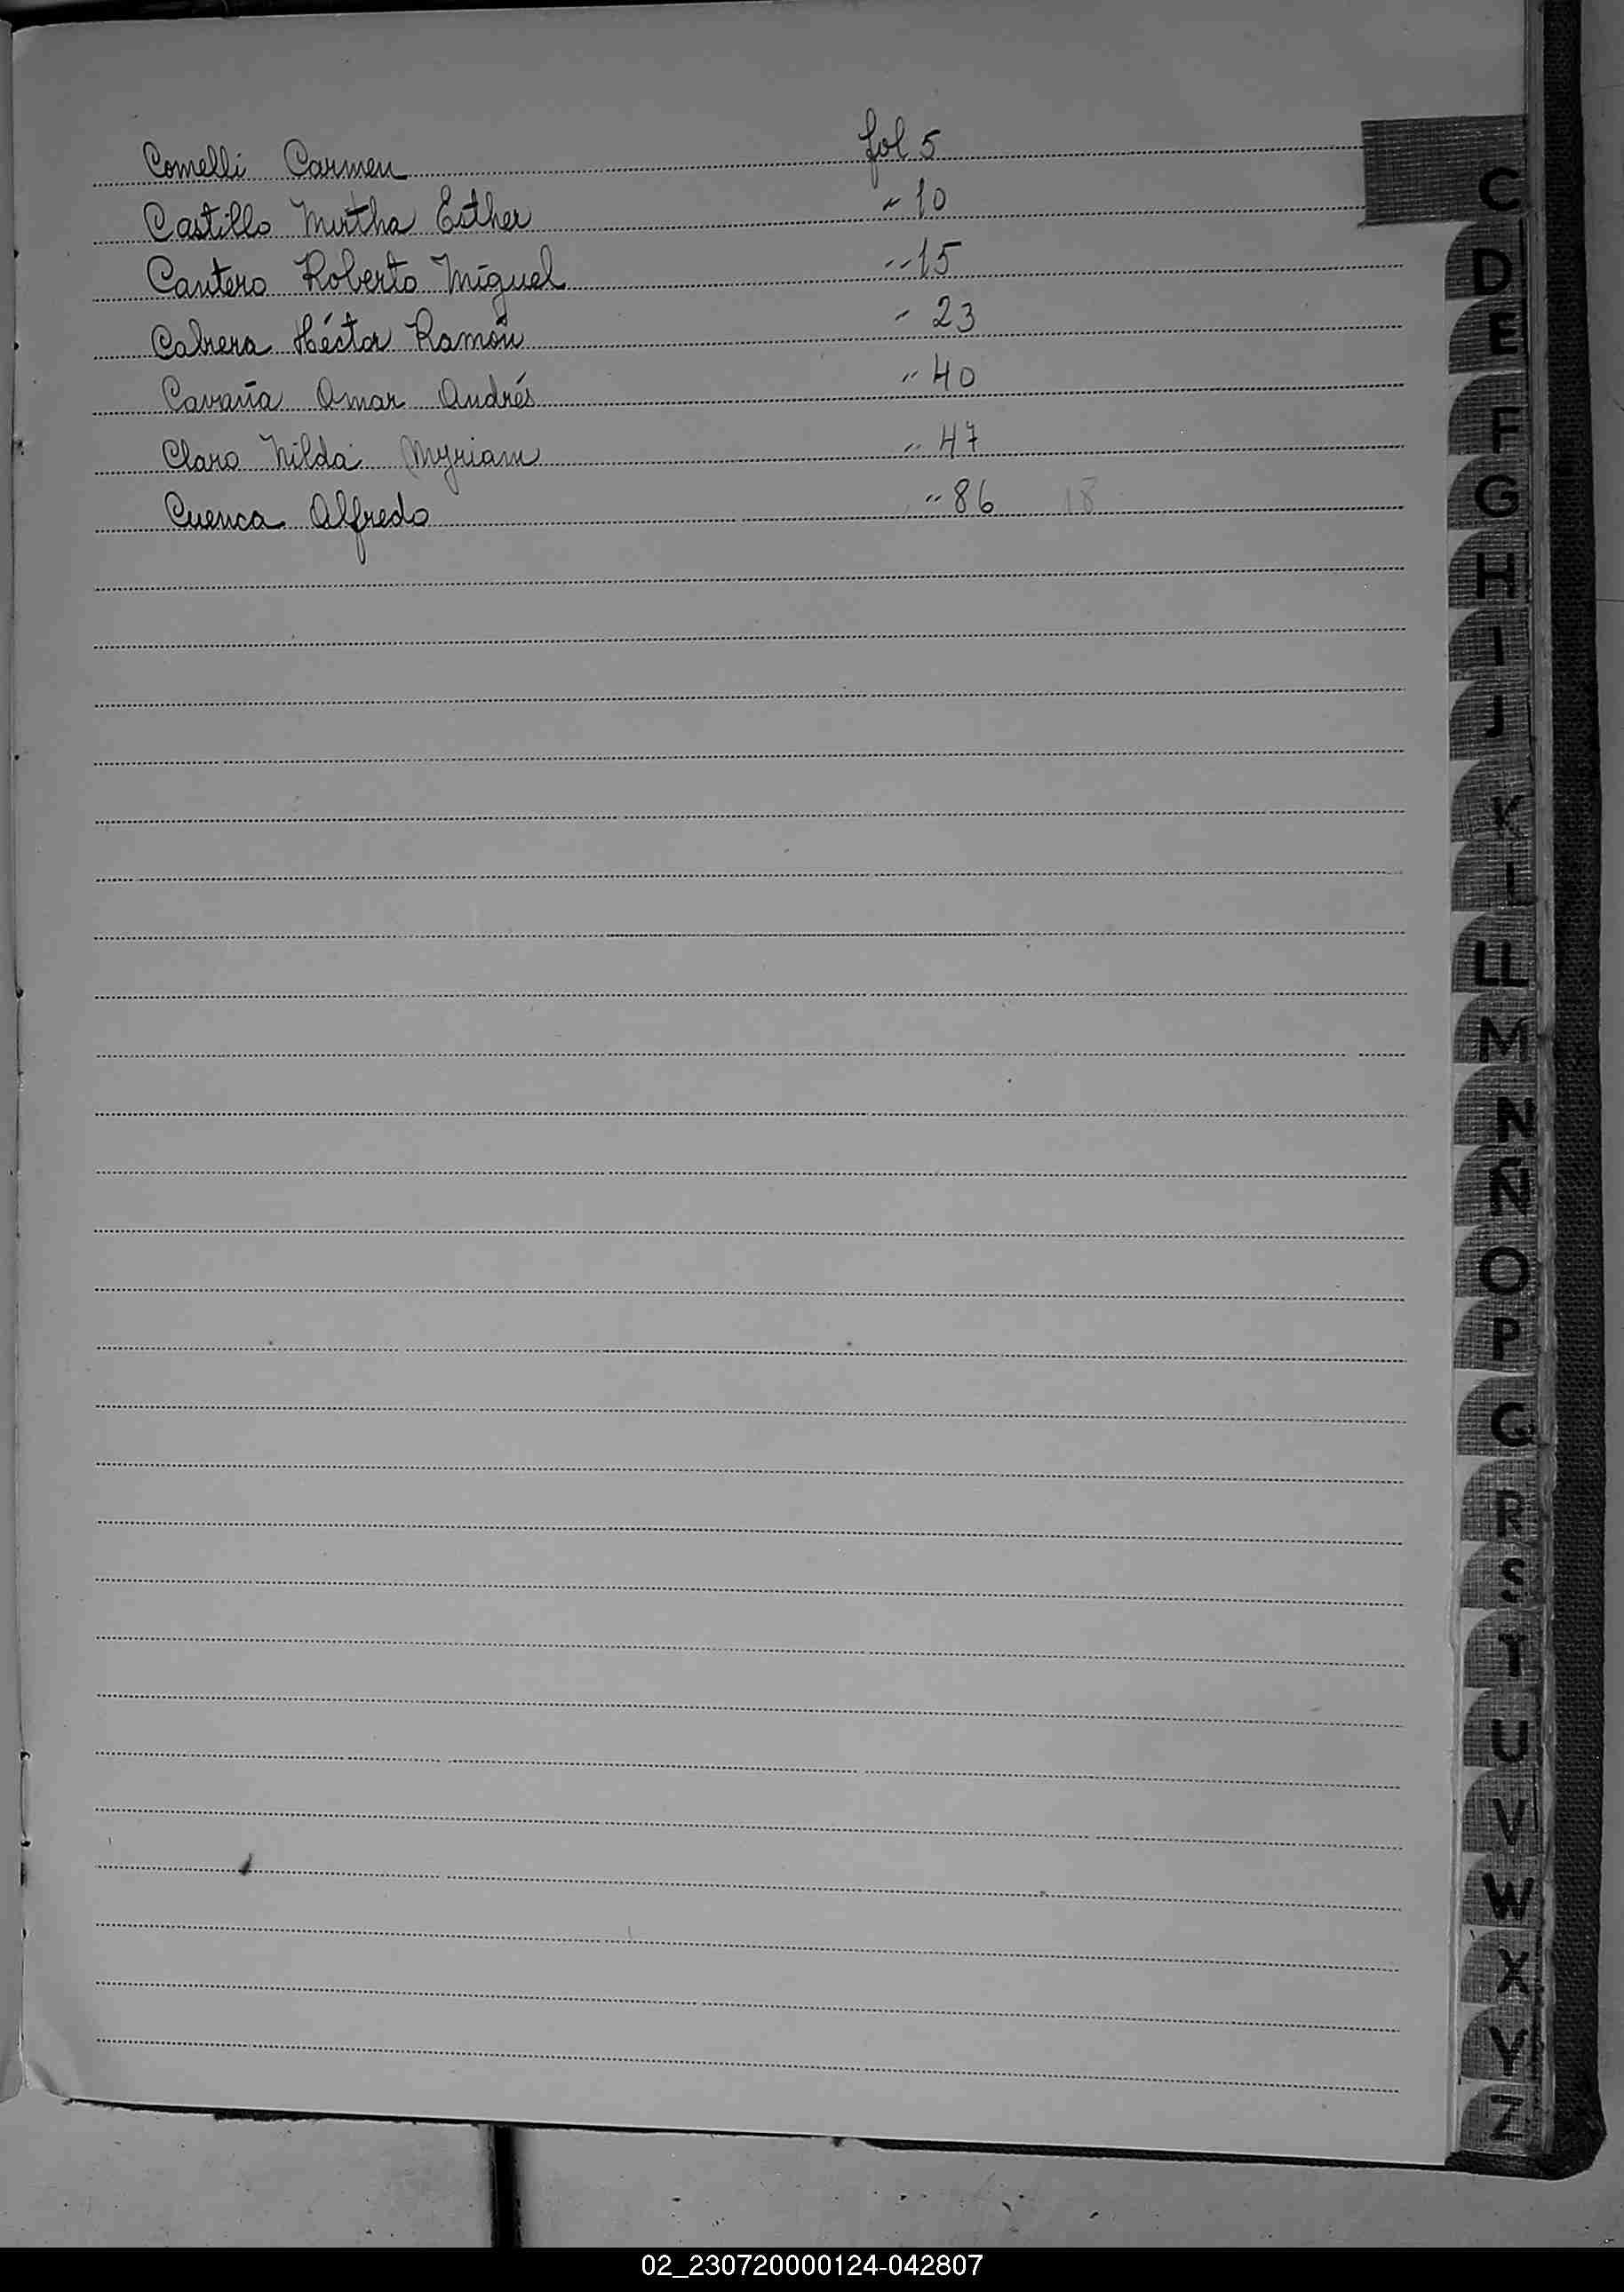 Comelli Carmen fol 5
Castillo Mirtha Esther " 10
Cantero Roberto Miguel " 15
Cabrera Héctor Ramón " 23
Cavaña Omar Andrés " 40
Claro Nilda Myriam " 47
Cuenca Alfredo " 86 18
C
D
E
F
G
H
I
J
K
L
LL
M
N
Ñ
O
P
Q
R
S
T
U
V
W
X
Y
Z
02_230720000124-042807